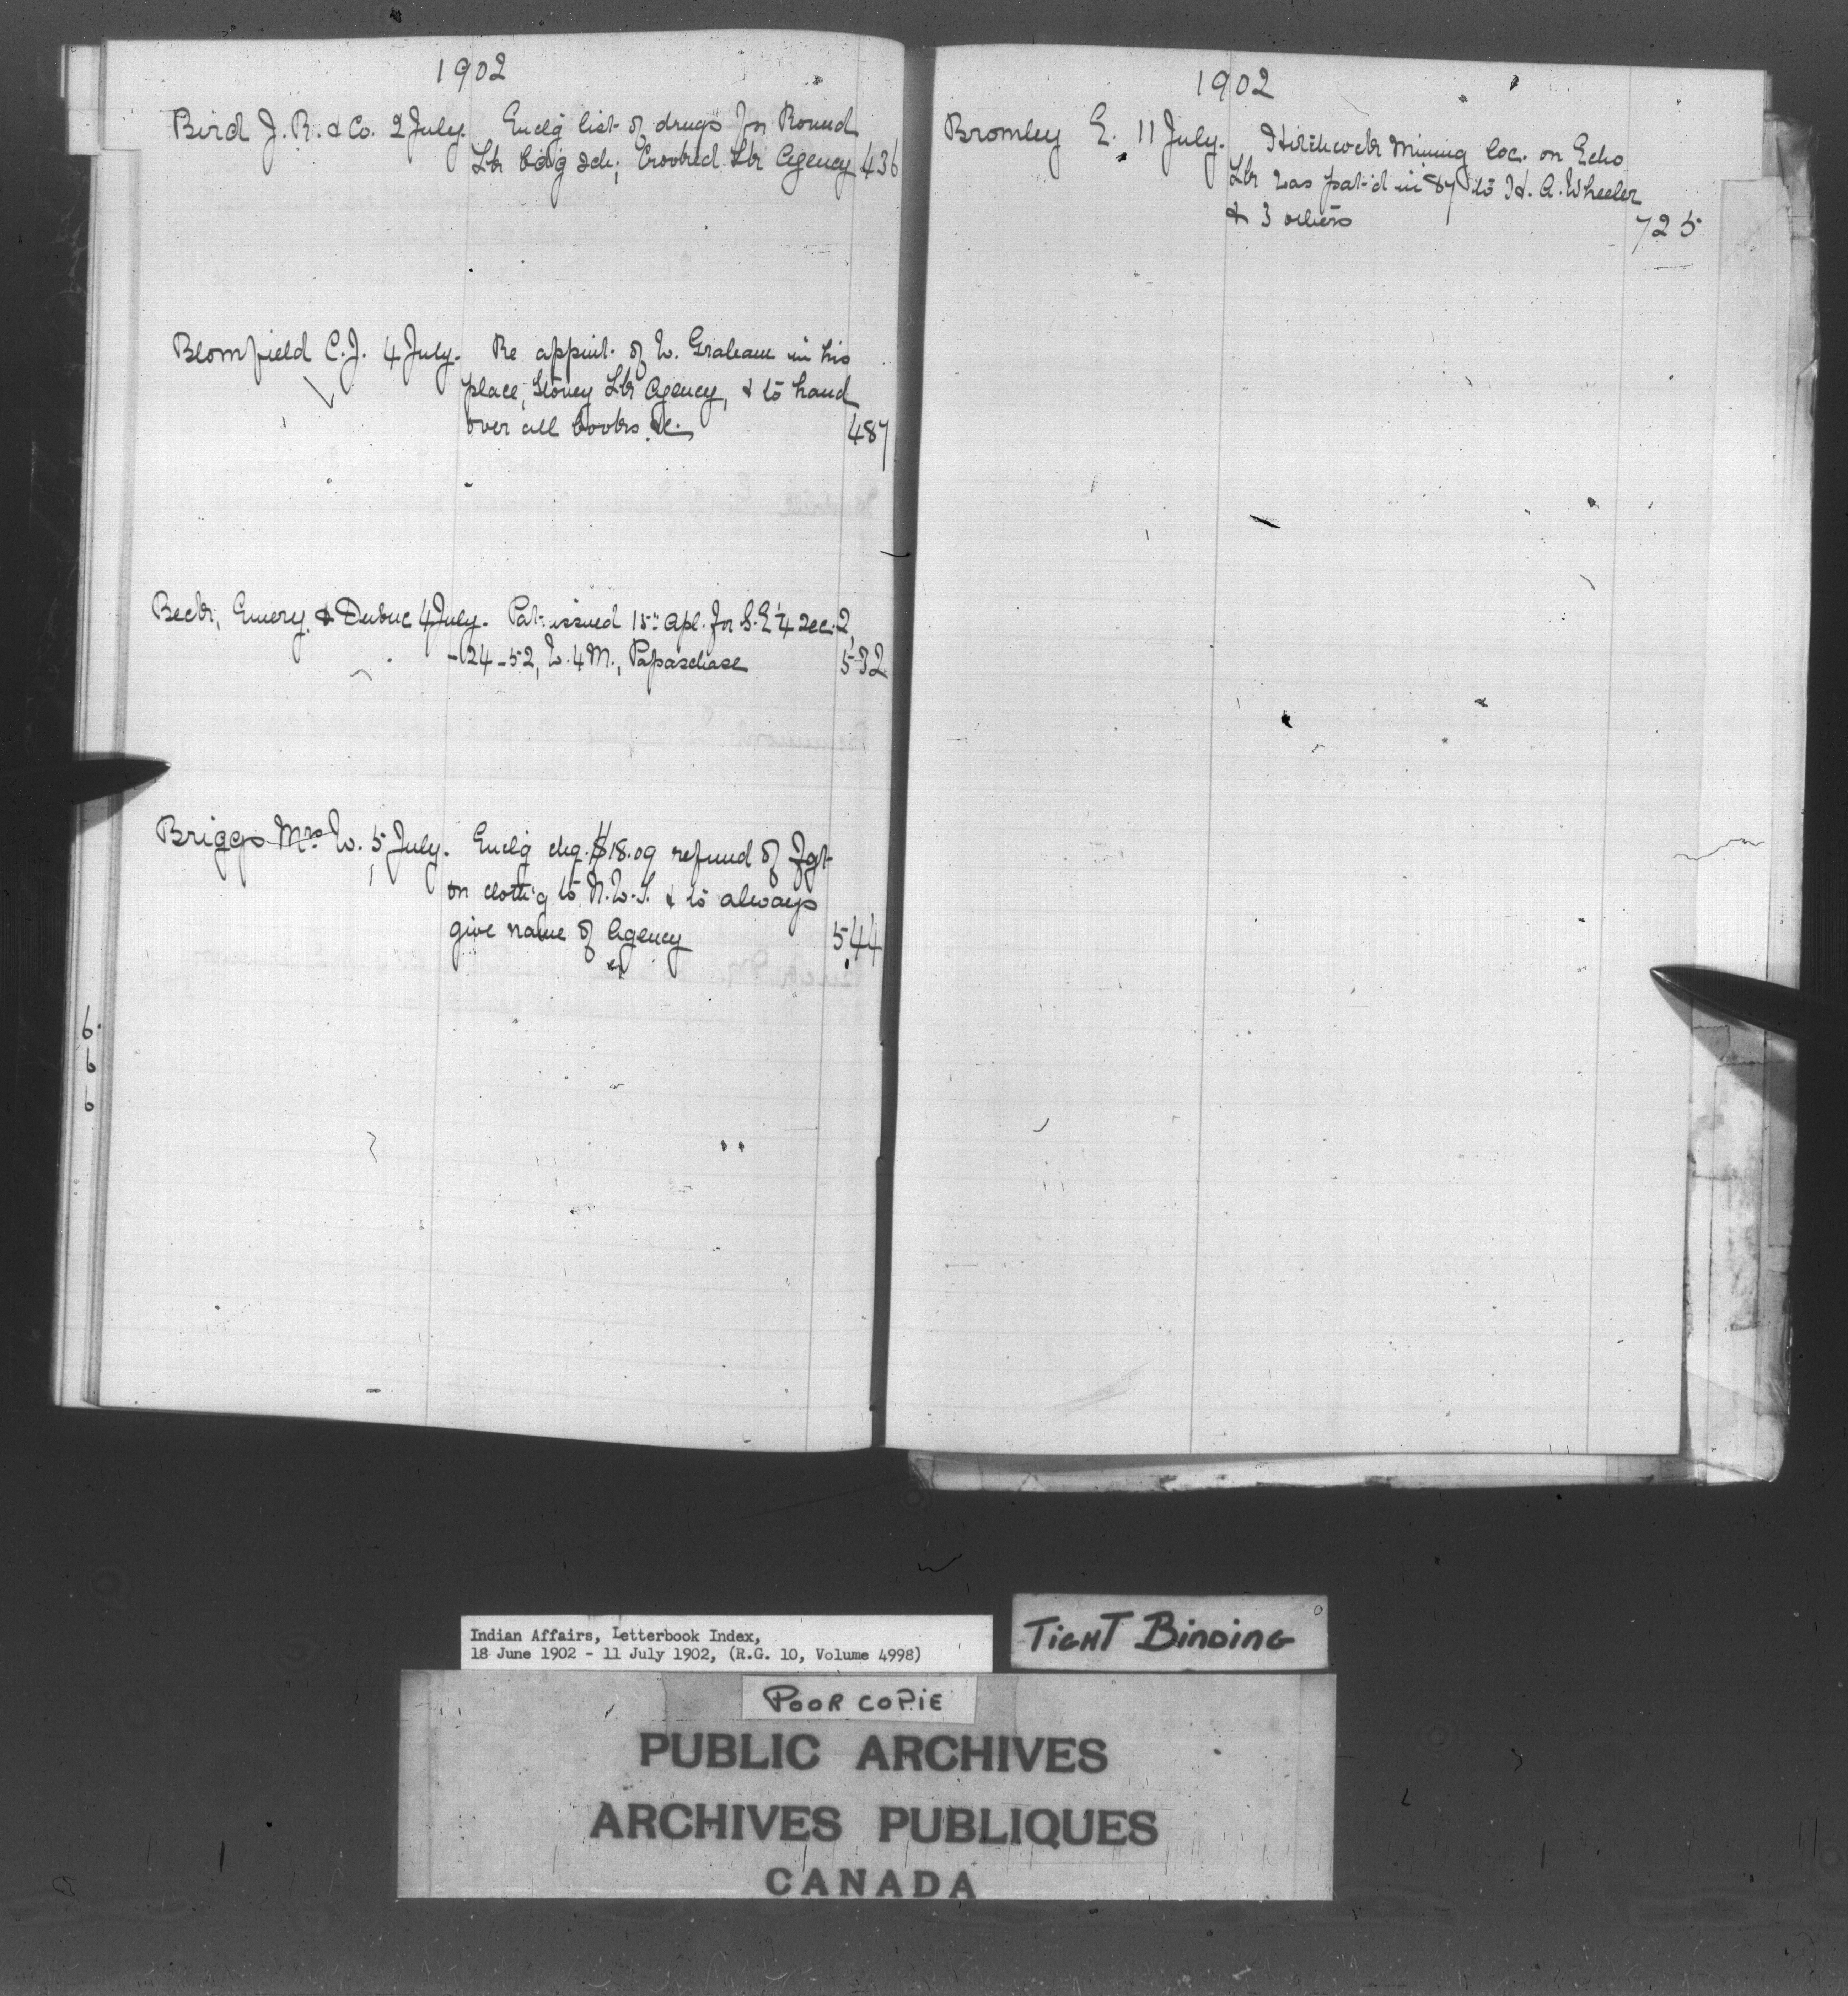 1902
Bird J. R. & Co. 2 July. Enclg list of drugs for Round
Lk bdg sch; Crooked Lk Agency 436
Blomfield C. J. 4 July. Re appnt. of W. Graham in his
place, Stoney Lk Agency, & to hand
over all books &c. 487
Beck, Emery & Dubuc 4 July. Pat. issued 15th Apl. for S.E ¼ sec. 2,
-24-52, W. 4 M., Papaschase 532
Briggs Mrs W. 5 July. Enclg chq. $18.09 refund of fgt
on clothg to N.W.T. & to always
give name of Agency 544
6
6
6
1902
Bromley E. 11 July. Hitchcock Mining loc. on Echo
Lk was pat'd in 87 to H. A. Wheeler
& 3 others 725
Indian Affairs, Letterbook Index,
18 June 1902 - 11 July 1902, (R.G. 10, Volume 4998)
TIGHT BINDING
POOR COPIE
PUBLIC ARCHIVES
ARCHIVES PUBLIQUES
CANADA